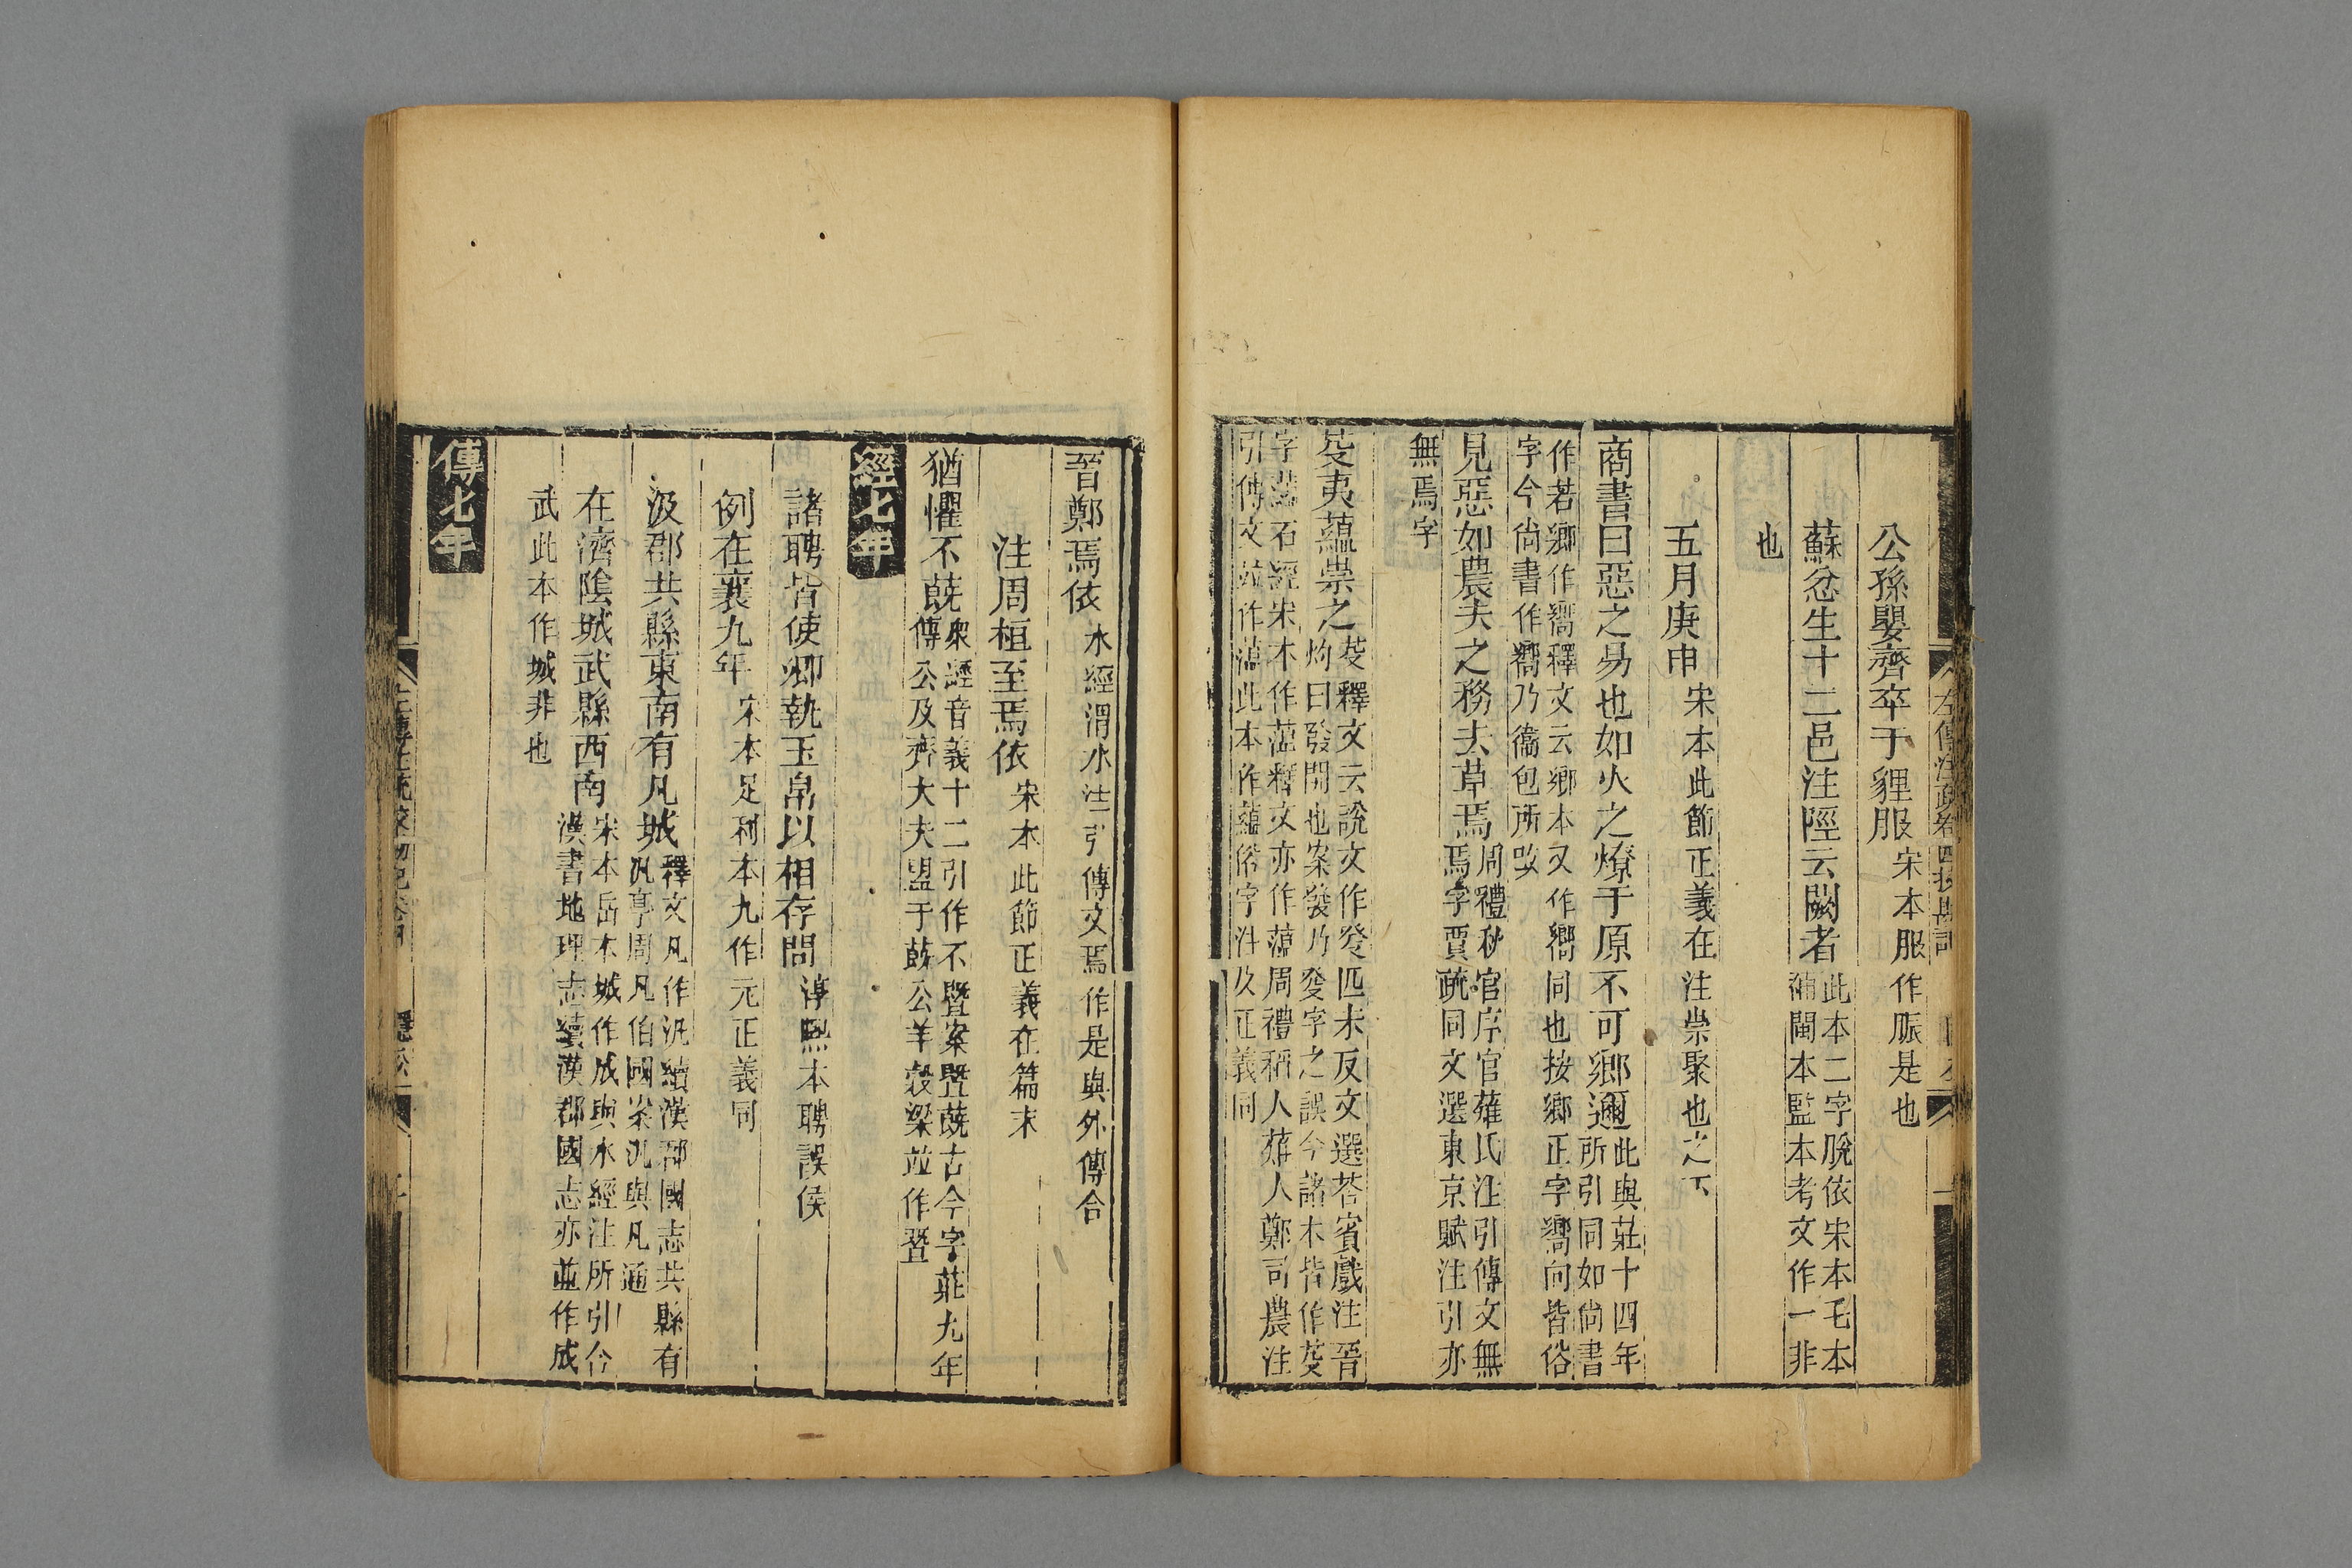 公孫嬰齊卒于貍服宋本服作脤是也
蘇忿生十二邑注陘云闕者此本二字脫依宋本毛本
補閩本監本考文作一非
也
五月庚申宋本此節正義在注崇聚也之下
商書曰惡之易也如火之燎于原不可鄉邇此與莊十四年
所引同如尙書
作若鄉作嚮釋文云鄉本又作嚮同也按鄉正字嚮向皆俗
字今尙書作嚮乃衞包所改
見惡如農夫之務去草焉周禮秋官序官薙氏注引傳文無
焉字賈疏同文選東京賦注引亦
無焉字
芟夷蘊崇之芟釋文云說文作癹匹末反文選荅賓戲注晉
灼曰發開也案發乃癹字之誤今諸本皆作芟
字蘊石經宋本作薀釋文亦作薀周禮稻人薙人鄭司農注
引傳文竝作薀此本作蘊俗字注及正義同
晉鄭焉依水經渭水注引傳文焉作是與外傳合
注周桓至焉依宋本此節正義在篇末
猶懼不蔇衆經音義十二引作不暨案暨蔇古今字莊九年
傳公及齊大夫盟于蔇公羊穀梁竝作暨
經七年
諸聘皆使卿執玉帛以相存問淳熙本聘誤侯
例在襄九年宋本足利本九作元正義同
汲郡共縣東南有凡城釋文凡作汎續漢郡國志共縣有
汎亭周凡伯國案汎與凡通
在濟陰城武縣西南宋本岳本城作成與水經注所引合
漢書地理志續漢郡國志亦並作成
武此本作城非也
傳七年